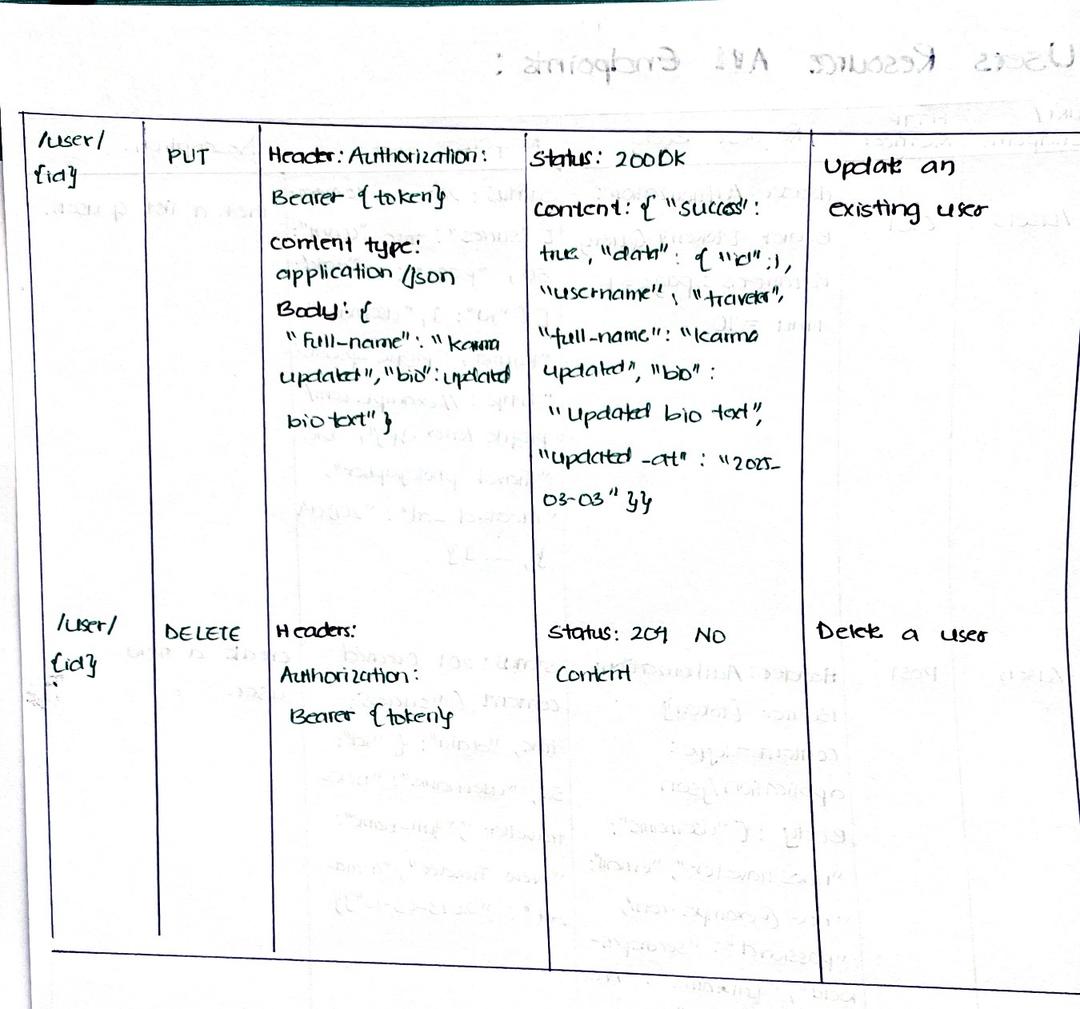 /user/
{id}
PUT
Header: Authorization:
Bearer {token}
content type:
application /json
Body: {
"full-name": "karma
updated", "bio": updated
bio text" }
Status: 200 OK
content: { "success":
true, "data": { "id": 1,
"username": "traveler",
"full-name": "karma
updated", "bio":
"updated bio text",
"updated -at" : "2025-
03-03" }}
Update an
existing user
/user/
{id}
DELETE
Headers:
Authorization:
Bearer {token}
Status: 204 NO
Content
Delete a user